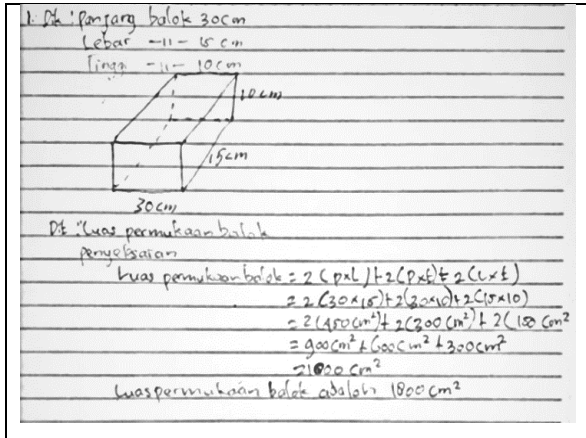 1. Dik : Panjang balok 30cm
Lebar -11- 15 cm
Tinggi -11- 10cm
10cm
15cm
30cm
Dit : Luas permukaan balok
penyelesaian
Luas permukaan balok = 2 (pxL) + 2(pxt) + 2 (Lxt)
= 2 (30x15) + 2(30x10) + 2(15x10)
= 2 (450 cm²) + 2(300 cm²) + 2( 150 cm²
= 900cm² + 600cm² + 300cm²
= 1800 cm²
Luas permukaan balok adalah 1800 cm²